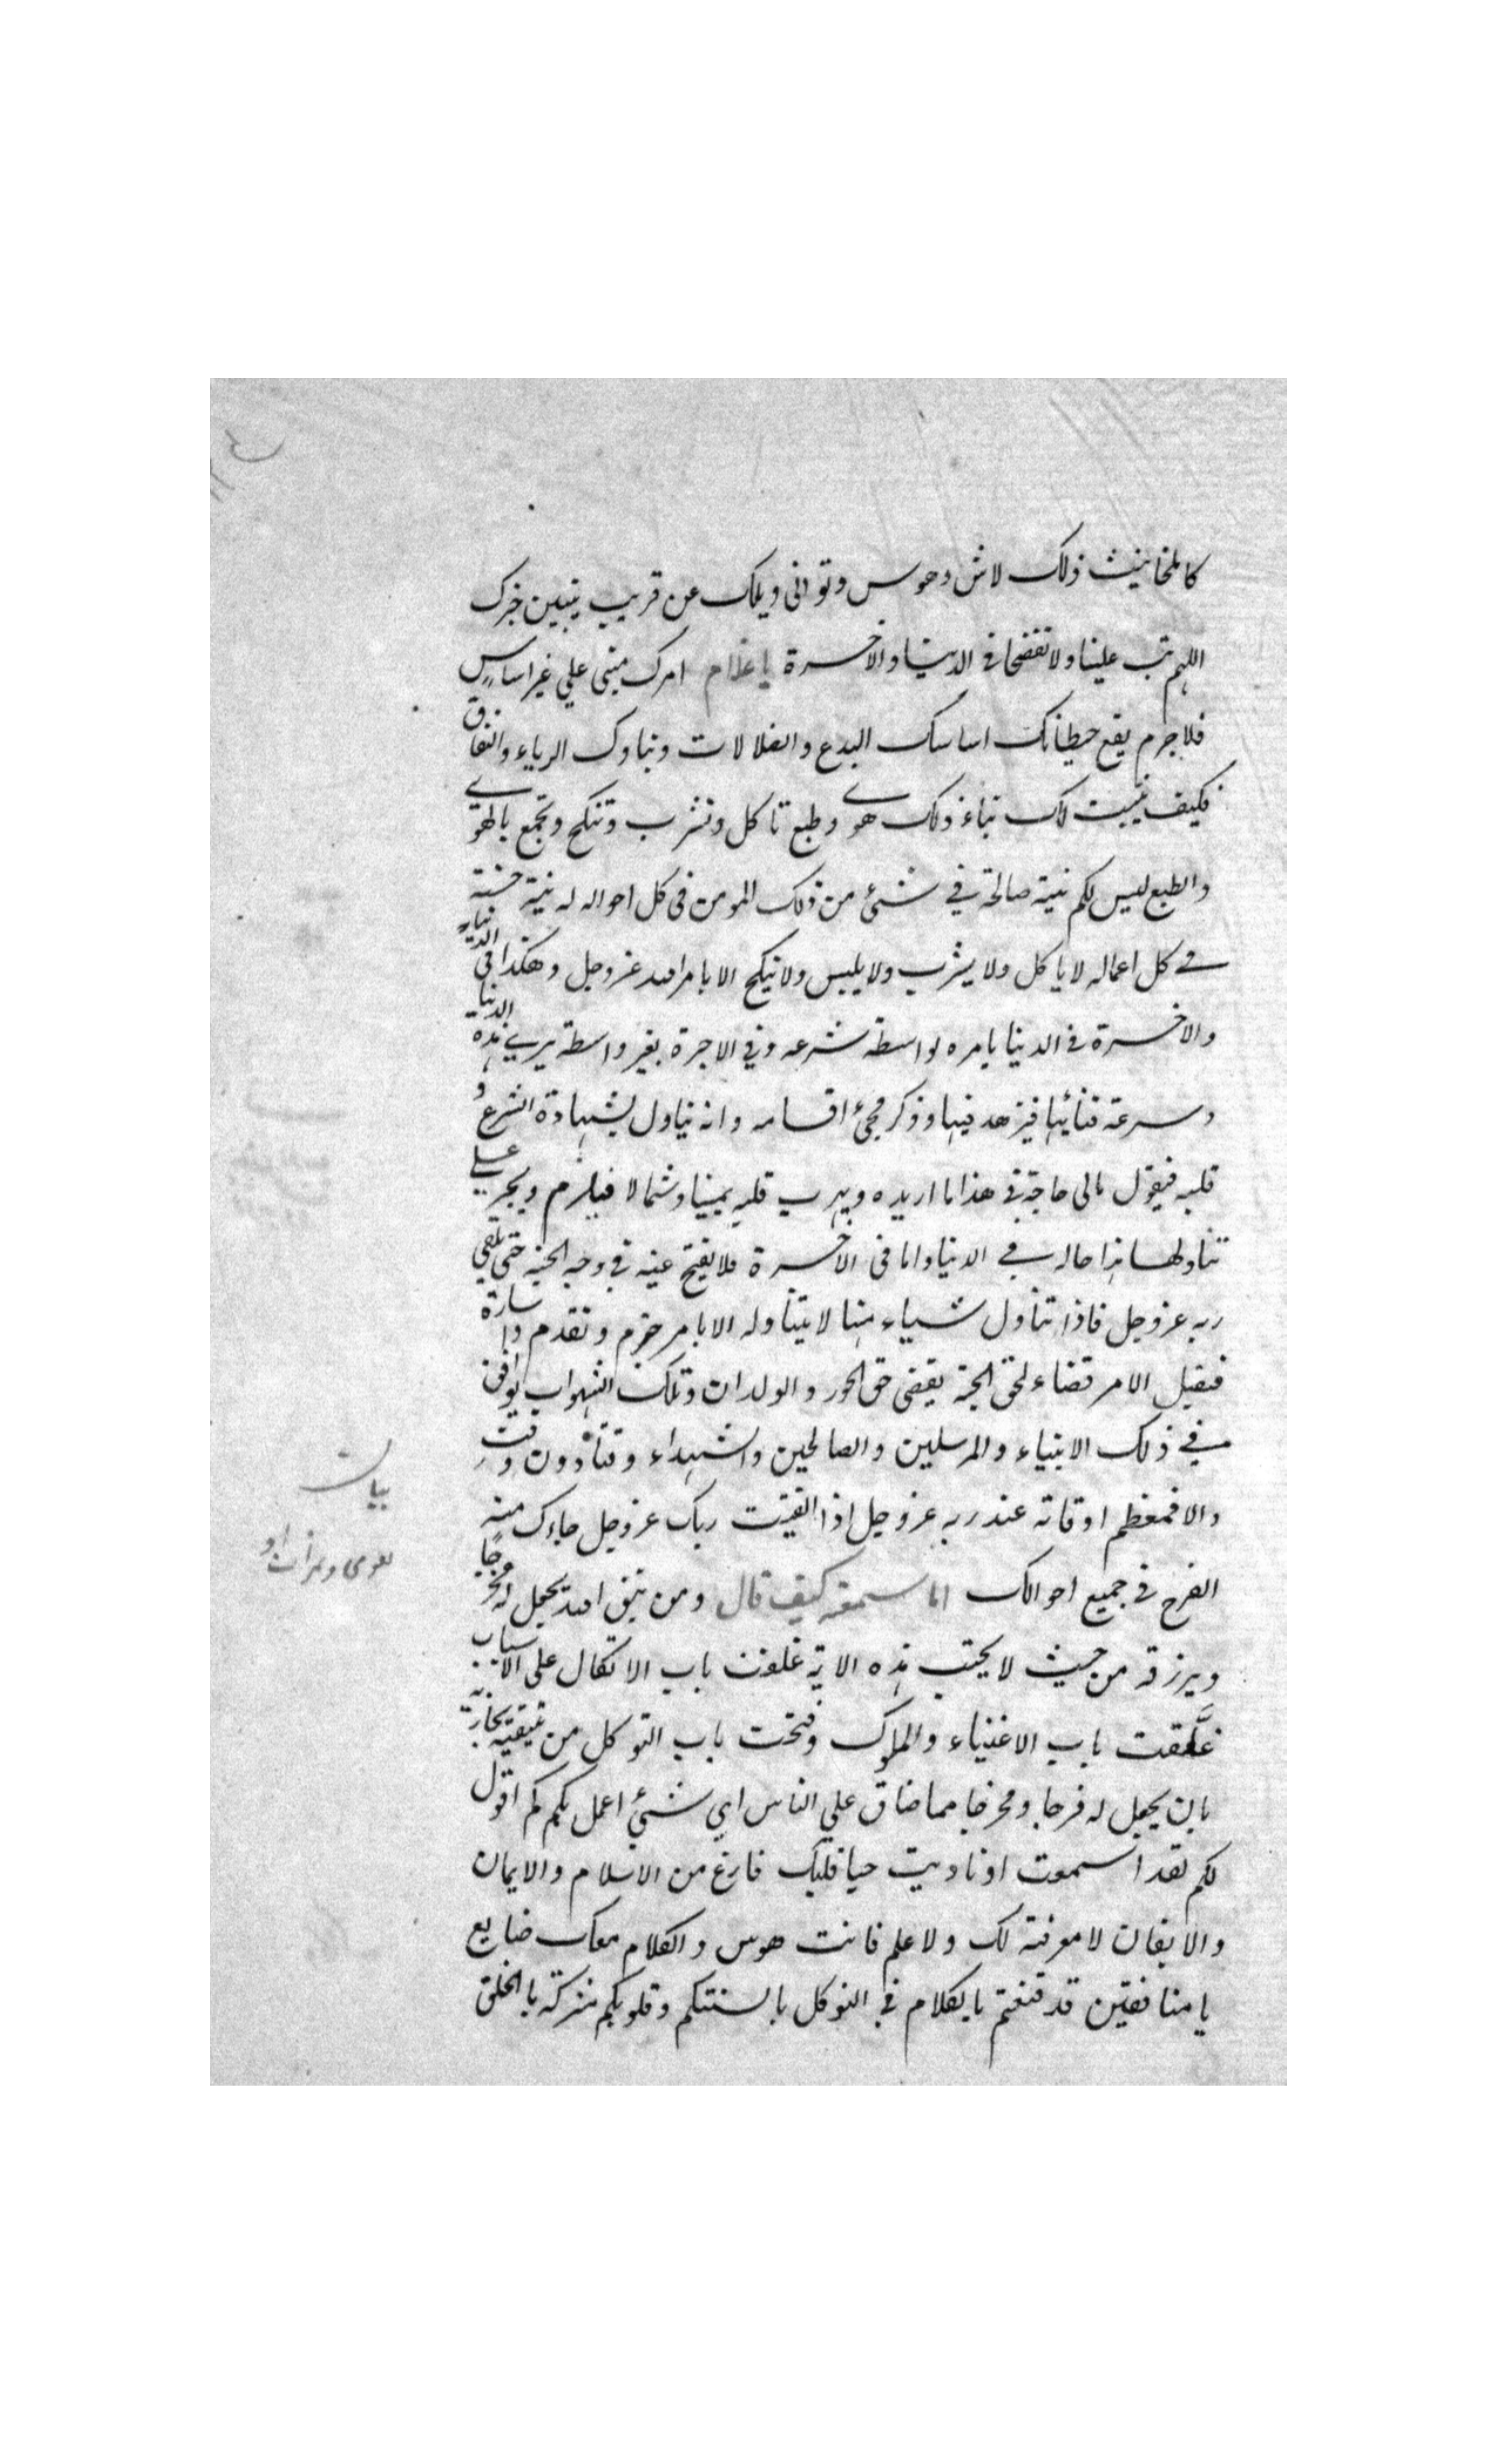 كالمخانيث ذلك لاش وهوس وتواني ويلك عن قريب يتبين خبرك
اللهم تب علينا ولا تفضحنا في الدنيا والاخرة يا غلام امرك مبني علي غير اساس
فلاجرم يقع حيطانك اساسك البدع والضلالات وبناوك الرياء والنفاق
فكيف يثبت لك بناء ذلك هوي وطبع تاكل وتشرب وتنكح وتجمع بالهوي
والطبع ليس لكم نية صالحة في شئ من ذلك المومن في كل احواله له نية حسنة
في كل اعماله لا ياكل ولا يشرب ولا يلبس ولا ينكح الا بامر الله عز وجل وهكذا في الدنيا
والاخرة في الدنيا يامره بواسطة شرعه وفي الاخرة بغير واسطة يري هذه الدنيا
وسرعة فنائها فيزهد فيها وذكر مجئ اقسامه وانه يتناول بشهادة الشرع و
قلبه فيقول مالي حاجة في هذا ما اريده ويهرب قلبه يمينا وشمالا فيلزم ويجبر علي
تناولها هذا حاله في الدنيا واما في الاخرة فلا يفتح عينه في وجه الجنة حتي تلقي
ربه عز وجل فاذا تناول شياء منها لا يتناوله الا بامر جزم وتقدم واشارة
فيقبل الامر قضاء لحق الجنة يقضي حق الحور والولدان وتلك الشهوات يوافق
في ذلك الانبياء والمرسلين والصالحين والشهداء وقتا دون وقت
والا فمعظم اوقاته عند ربه عز وجل اذا اتقيت ربك عز وجل جاءك منه
الفرج في جميع احوالك اما سمعته كيف قال ومن يتق الله يجعل له مخرجا
ويرزقه من حيث لا يحتسب هذه الاية غلقت باب الاتكال علي الاسباب
غلقت باب الاغنياء والملوك وفتحت باب التوكل من يتقيه يجازيه
بان يجعل له فرجا ومخرجا مما ضاق علي الناس اي شئ اعمل بكم كم اقول
لكم لقد اسمعت لو ناديت حيا قلبك فارغ من الاسلام والايمان
والايقان لا معرفة لك ولا علم فانت هوس والكلام معك ضايع
يا منافقين قد قنعتم بالكلام في التوكل بالسنتكم وقلوبكم مشركة بالخلق
بيان